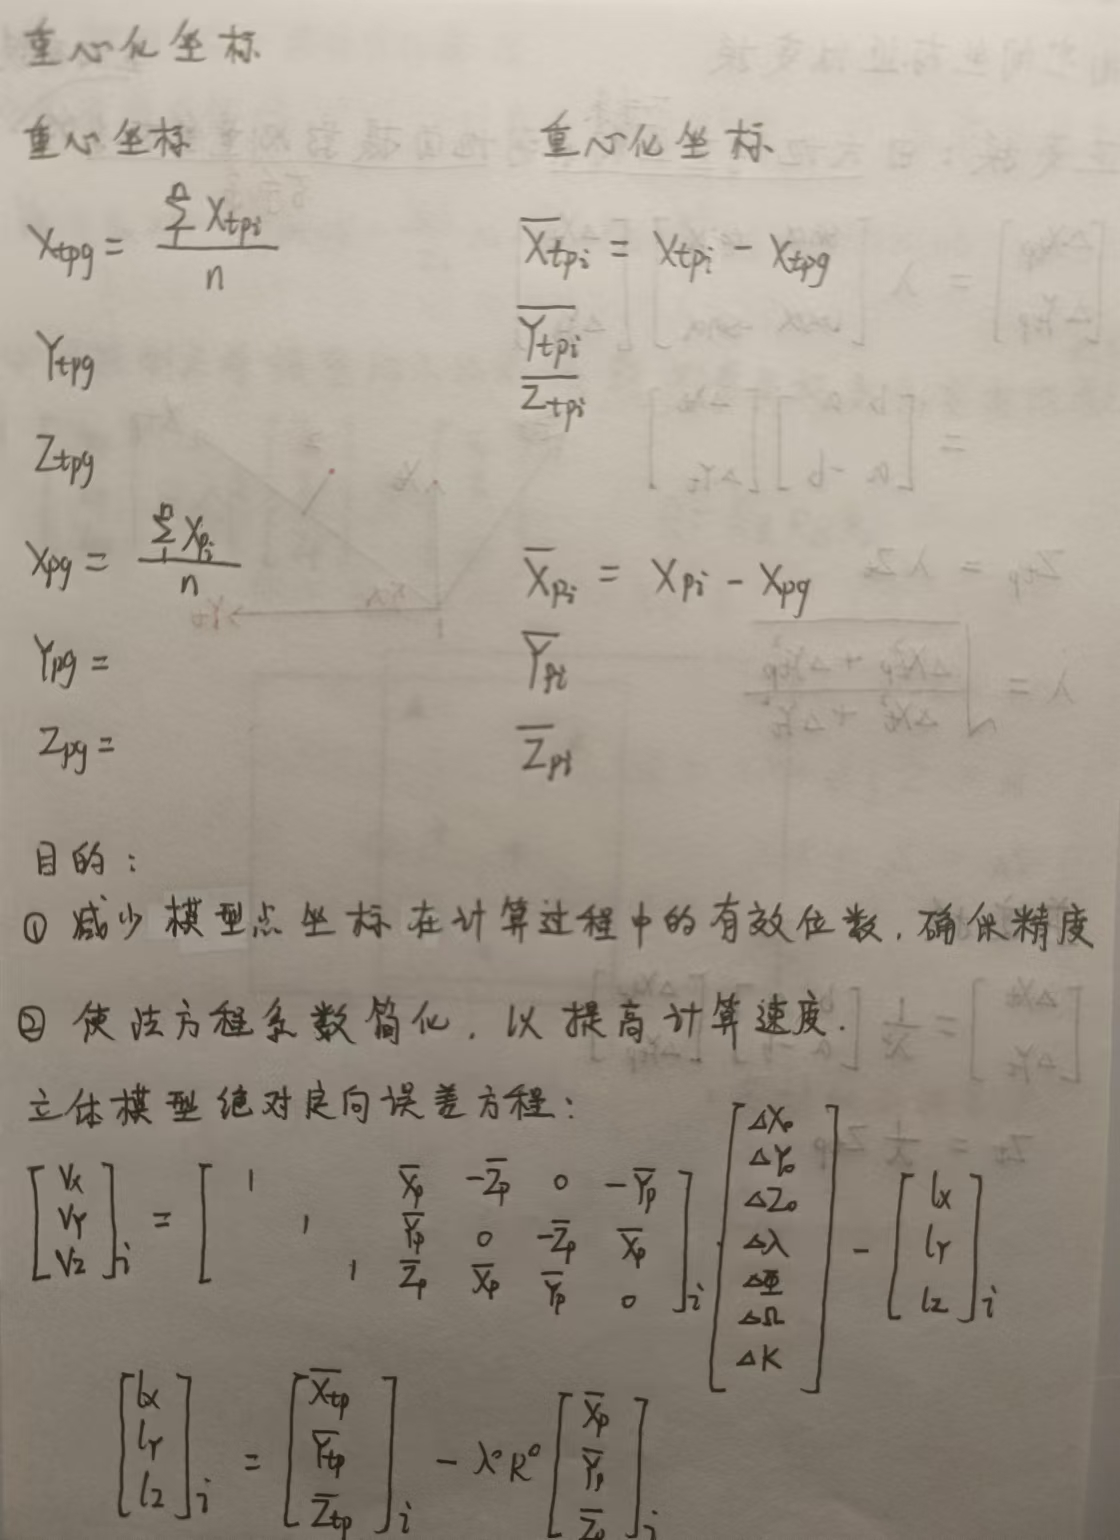 重心化坐标
重心坐标 重心化坐标
X_{tpg} = \frac{\sum_{1}^{n} X_{tpi}}{n} \overline{X_{tpi}} = X_{tpi} - X_{tpg}
Y_{tpg} \overline{Y_{tpi}}
Z_{tpg} \overline{Z_{tpi}}
X_{pg} = \frac{\sum_{1}^{n} X_{pi}}{n} \overline{X}_{pi} = X_{pi} - X_{pg}
Y_{pg} = \overline{Y}_{pi}
Z_{pg} = \overline{Z}_{pi}
目的:
① 减少模型点坐标在计算过程中的有效位数,确保精度
② 使法方程系数简化,以提高计算速度.
立体模型绝对定向误差方程:
\begin{bmatrix} V_X \\ V_Y \\ V_Z \end{bmatrix}_i = \begin{bmatrix} 1 & & & \overline{X}_p & -\overline{Z}_p & 0 & -\overline{Y}_p \\ & 1 & & \overline{Y}_p & 0 & -\overline{Z}_p & \overline{X}_p \\ & & 1 & \overline{Z}_p & \overline{X}_p & \overline{Y}_p & 0 \end{bmatrix}_i \cdot \begin{bmatrix} \Delta X_0 \\ \Delta Y_0 \\ \Delta Z_0 \\ \Delta\lambda \\ \Delta\Phi \\ \Delta\Omega \\ \Delta K \end{bmatrix} - \begin{bmatrix} l_X \\ l_Y \\ l_Z \end{bmatrix}_i
\begin{bmatrix} l_X \\ l_Y \\ l_Z \end{bmatrix}_i = \begin{bmatrix} \overline{X}_{tp} \\ \overline{Y}_{tp} \\ \overline{Z}_{tp} \end{bmatrix}_i - \lambda^0 R^0 \begin{bmatrix} \overline{X}_p \\ \overline{Y}_p \\ \overline{Z}_p \end{bmatrix}_i